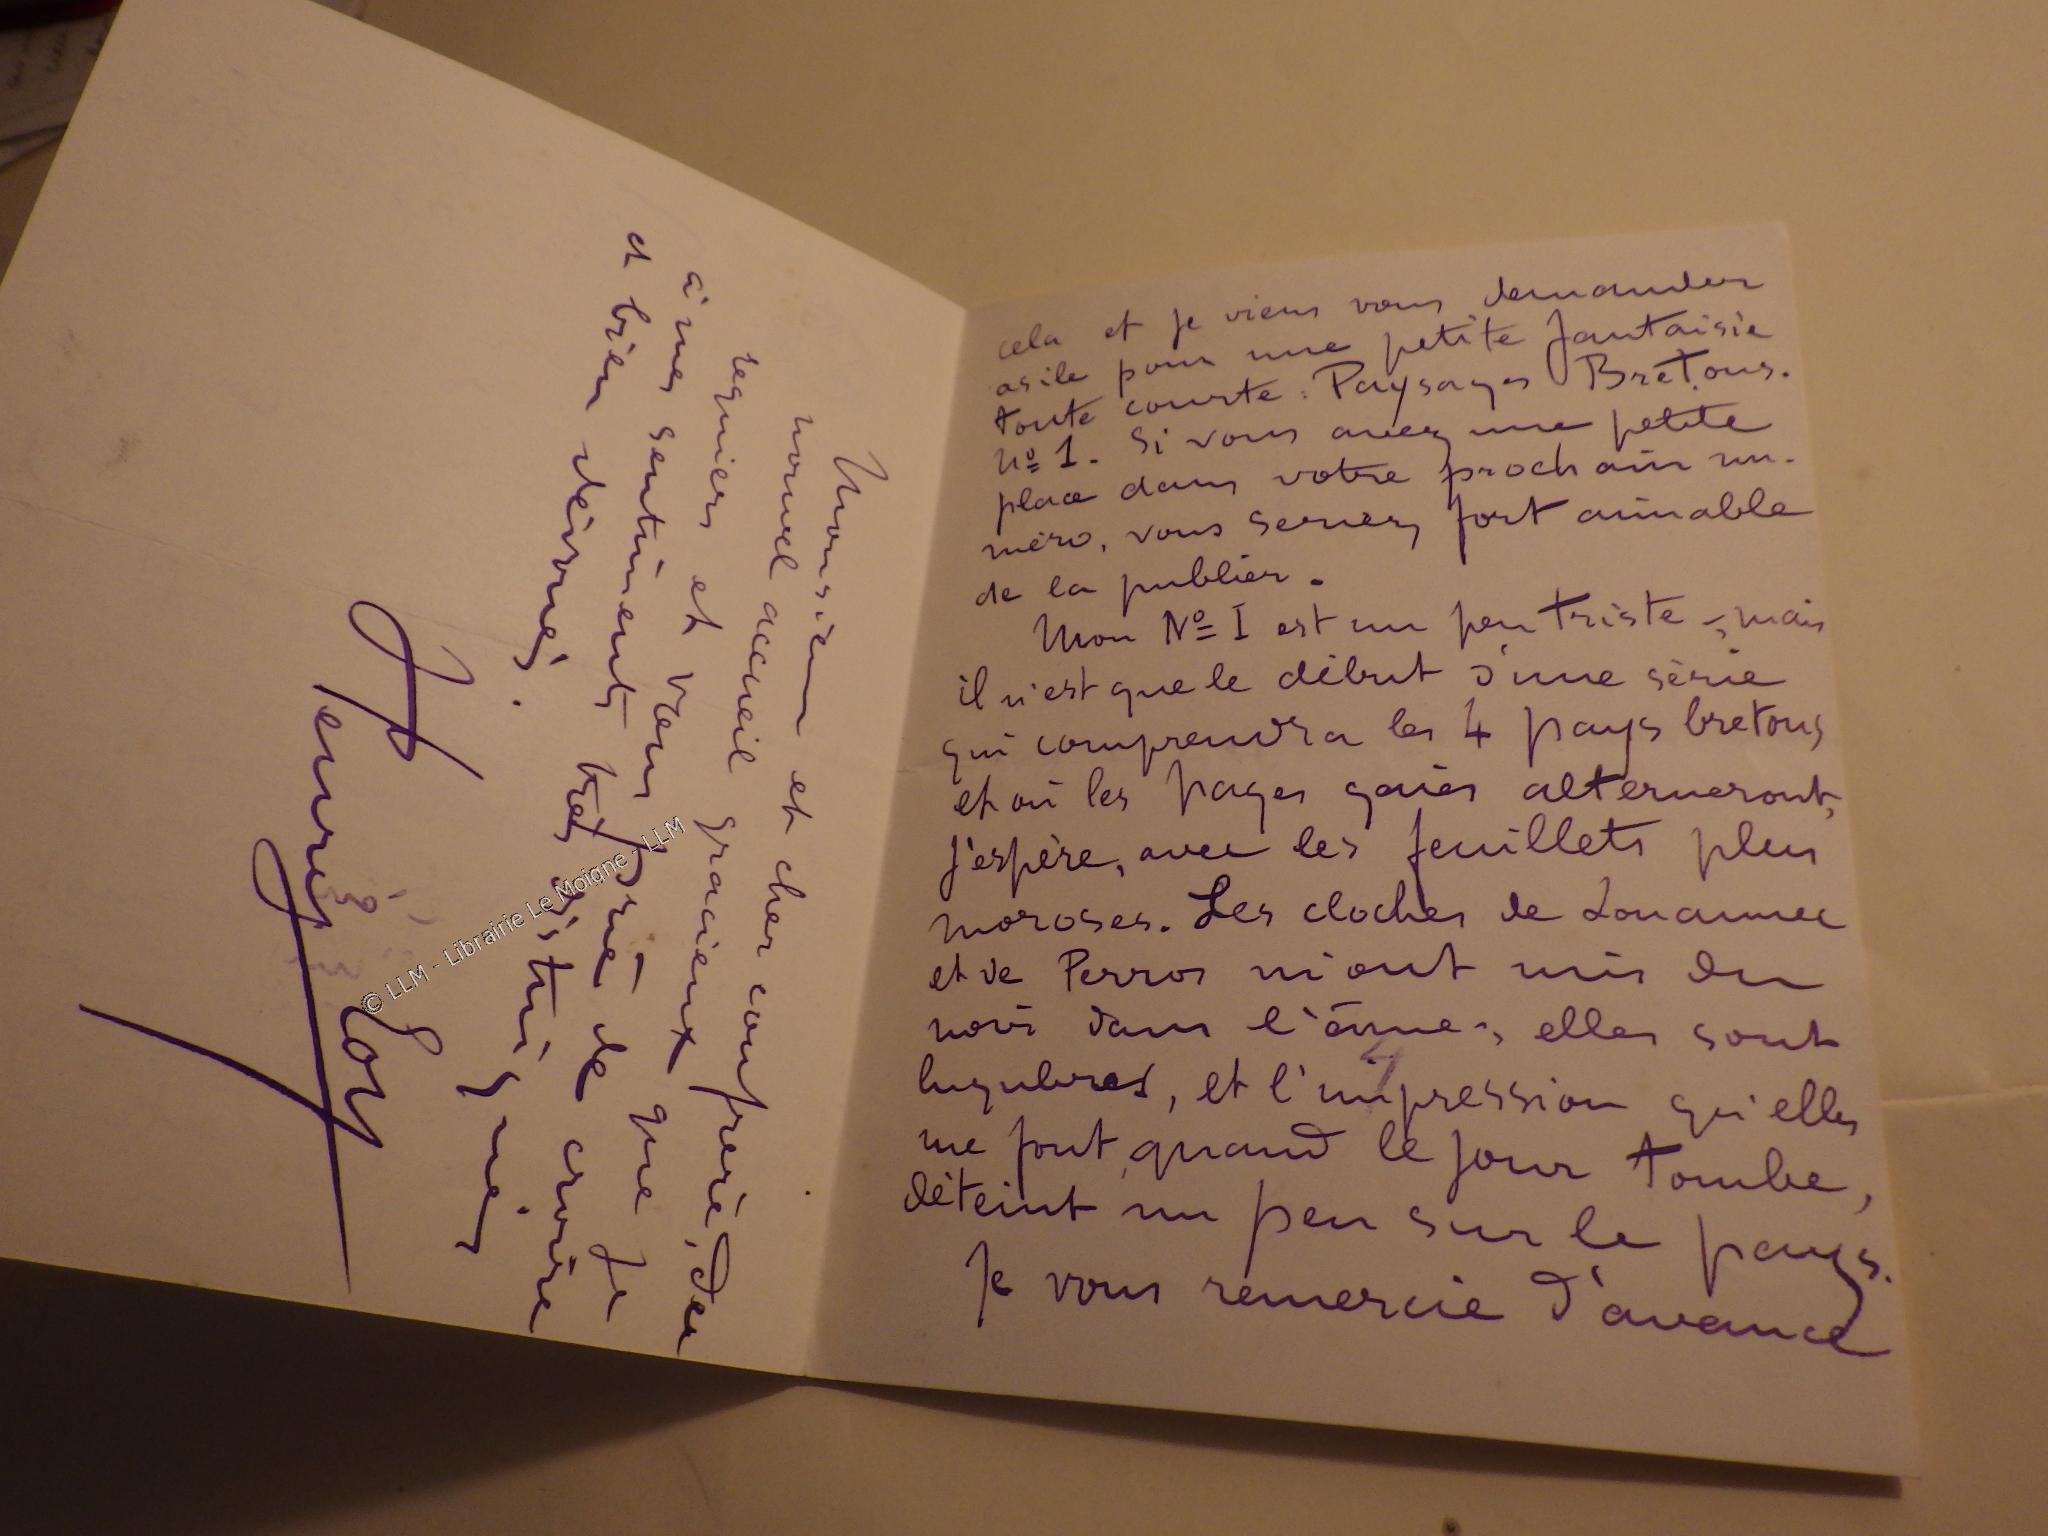 cela et je viens vous demander
asile pour une petite fantaisie
toute courte : Paysages Bretons.
No 1. Si vous avez une petite
place dans votre prochain nu-
méro, vous seriez fort aimable
de la publier.
Mon No I est un peu triste, mais
il n'est que le début d'une série
qui comprendra les 4 pays bretons
et où les pages gaies alterneront,
j'espère, avec les feuillets plus
moroses. Les cloches de Louannec
et de Perros m'ont mis du
noir dans l'âme, elles sont
lugubres, et l'impression qu'elles
me font, quand le jour tombe,
déteint un peu sur le pays.
Je vous remercie d'avance
Monsieur et cher confrère, du
nouvel accueil gracieux que je
requiers et vous prie de croire
à mes sentiments très distingués
et bien dévoués.
Henri
© LLM - Librairie Le Moigne - LLM